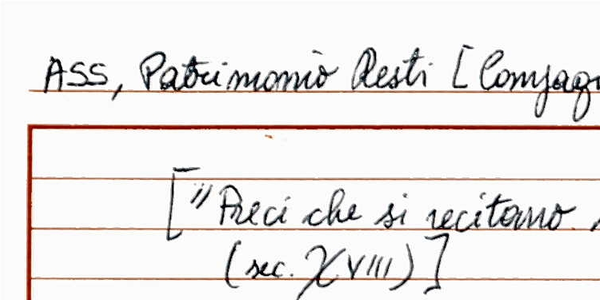 ASS, Patrimonio Resti [Compag
["Preci che si recitano
(sec. XVIII)]